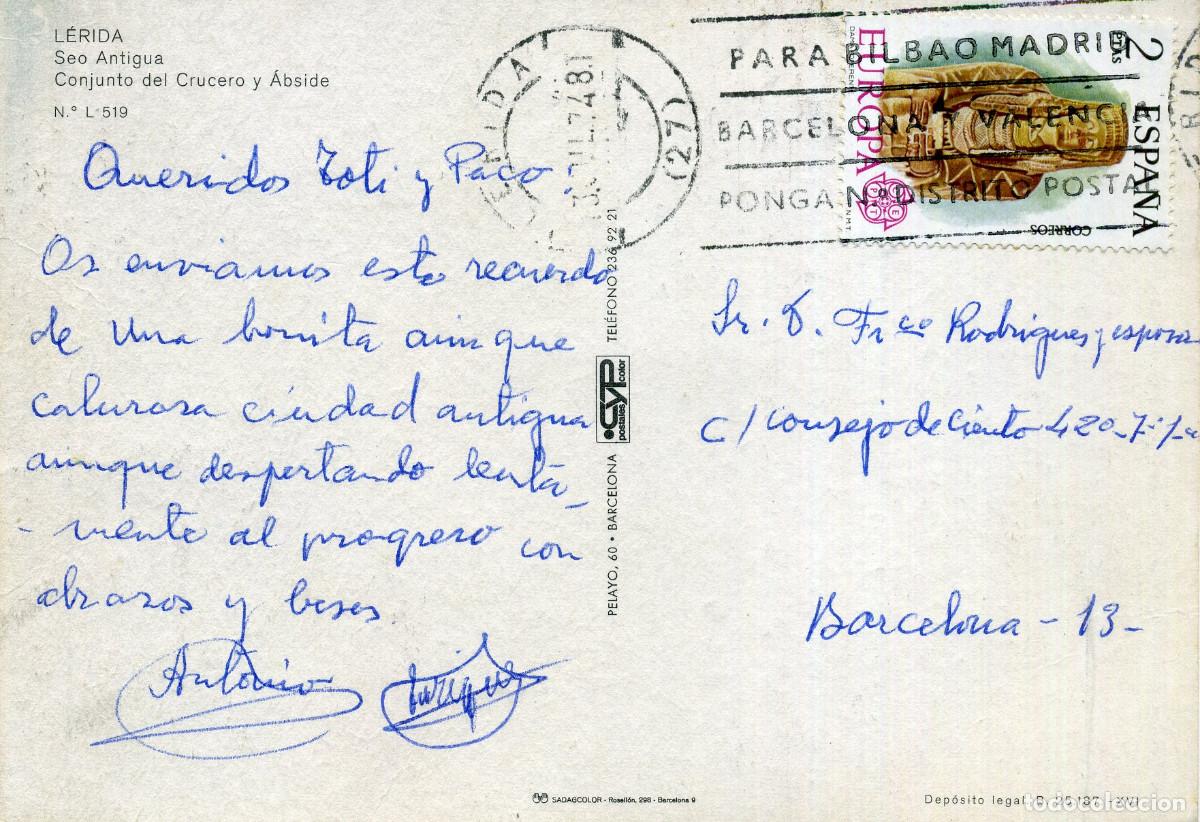 LÉRIDA
Seo Antigua
Conjunto del Crucero y Ábside
N.° L-519
Queridos Toti y Paco:
Os enviamos este recuerdo
de una bonita aunque
calurosa ciudad antigua
aunque despertando lenta-
-mente al progreso con
abrazos y besos
Antonio Enrique
PELAYO, 60 • BARCELONA
CYP
postales color
TELÉFONO 236 92 21
LERIDA
(27)
PARA BILBAO MADRID
BARCELONA Y VALENCIA
PONGA N.º DISTRITO POSTAL
EUROPA
CEPT
F.N.M.T.
2 PTAS
ESPAÑA
CORREOS
Sr. D. Frco Rodrigues y esposa
C/ Consejo de Ciento 420-7º-1ª
Barcelona - 13-
SADAGCOLOR - Rosellón, 298 - Barcelona 9
Depósito legal B. 25.187 -XVI
todocoleccion.net